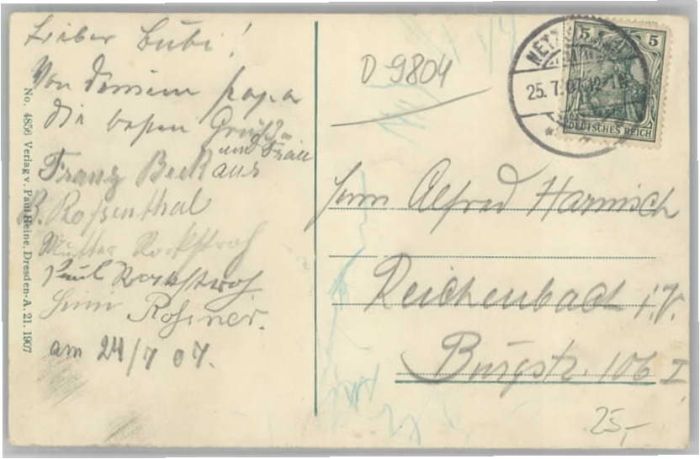 Lieber Bubi!
Von deinem papa
die besten Grüße
und Frau
Franz Beckaus
Rosenthal
Mutter Rockstroh
Paul Rockstroh
Rossner.
am 24/7 07.
No. 4856 Verlag v. Paul Heine, Dresden-A. 21. 1907
D 9804
25. 7. 07. 12-1
5 5
DEUTSCHES REICH
Herrn Alfred Harnisch
Reichenbach i. V.
Burgstr. 106 I
25,-